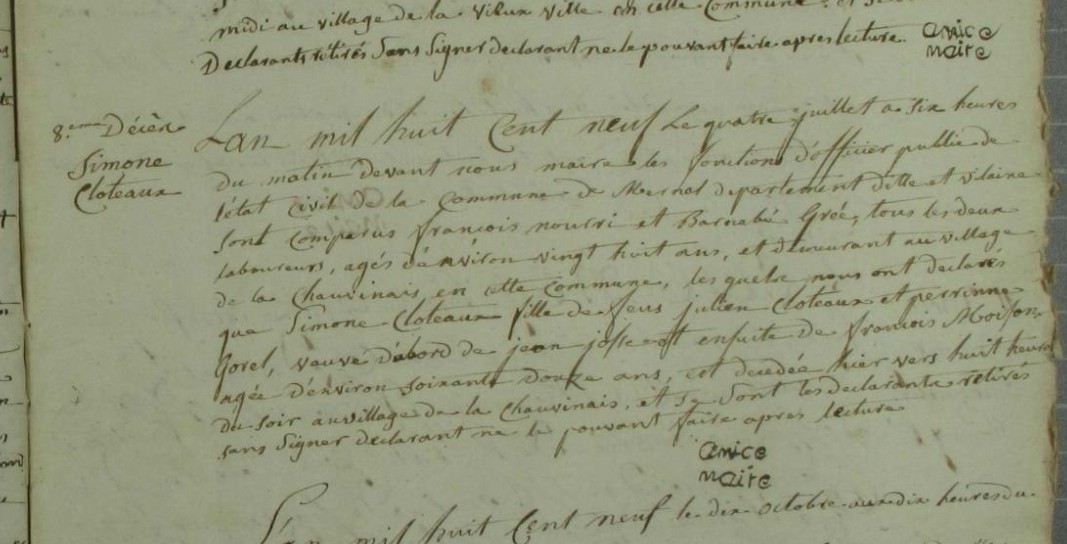 midi au village de la vieux ville en cette Commune. et se
Declarants rétirés Sans Signer declarant ne le pouvant faire apres lecture. amice
maire
8.eme Décès
Simone
Cloteaux
Lan mil huit Cent neuf Le quatre juillet a six heures
du matin devant nous maire les fonctions d'officier public de
l'état Civil de la Commune de Mernel departement dille et vilaine
sont Comparus françois nourri et Barnabé Grée, tous les deux
laboureurs, agés d'environ vingt huit ans, et demeurant au village
de la Chauvinais en cette Commune, les quels nous ont declarés
que Simone Cloteaux fille de feus julien Cloteaux et perrinne
Gorel, veuve d'abord de jean josse et ensuite de françois Moison
agée d'environ soixante douze ans, est decedée hier vers huit heures
du soir au village de la Chauvinais, et se sont les declarants retirés
sans Signer declarant ne le pouvant faire apres lecture
amice
maire
Lan mil huit Cent neuf le dix octobre aux dix heures du